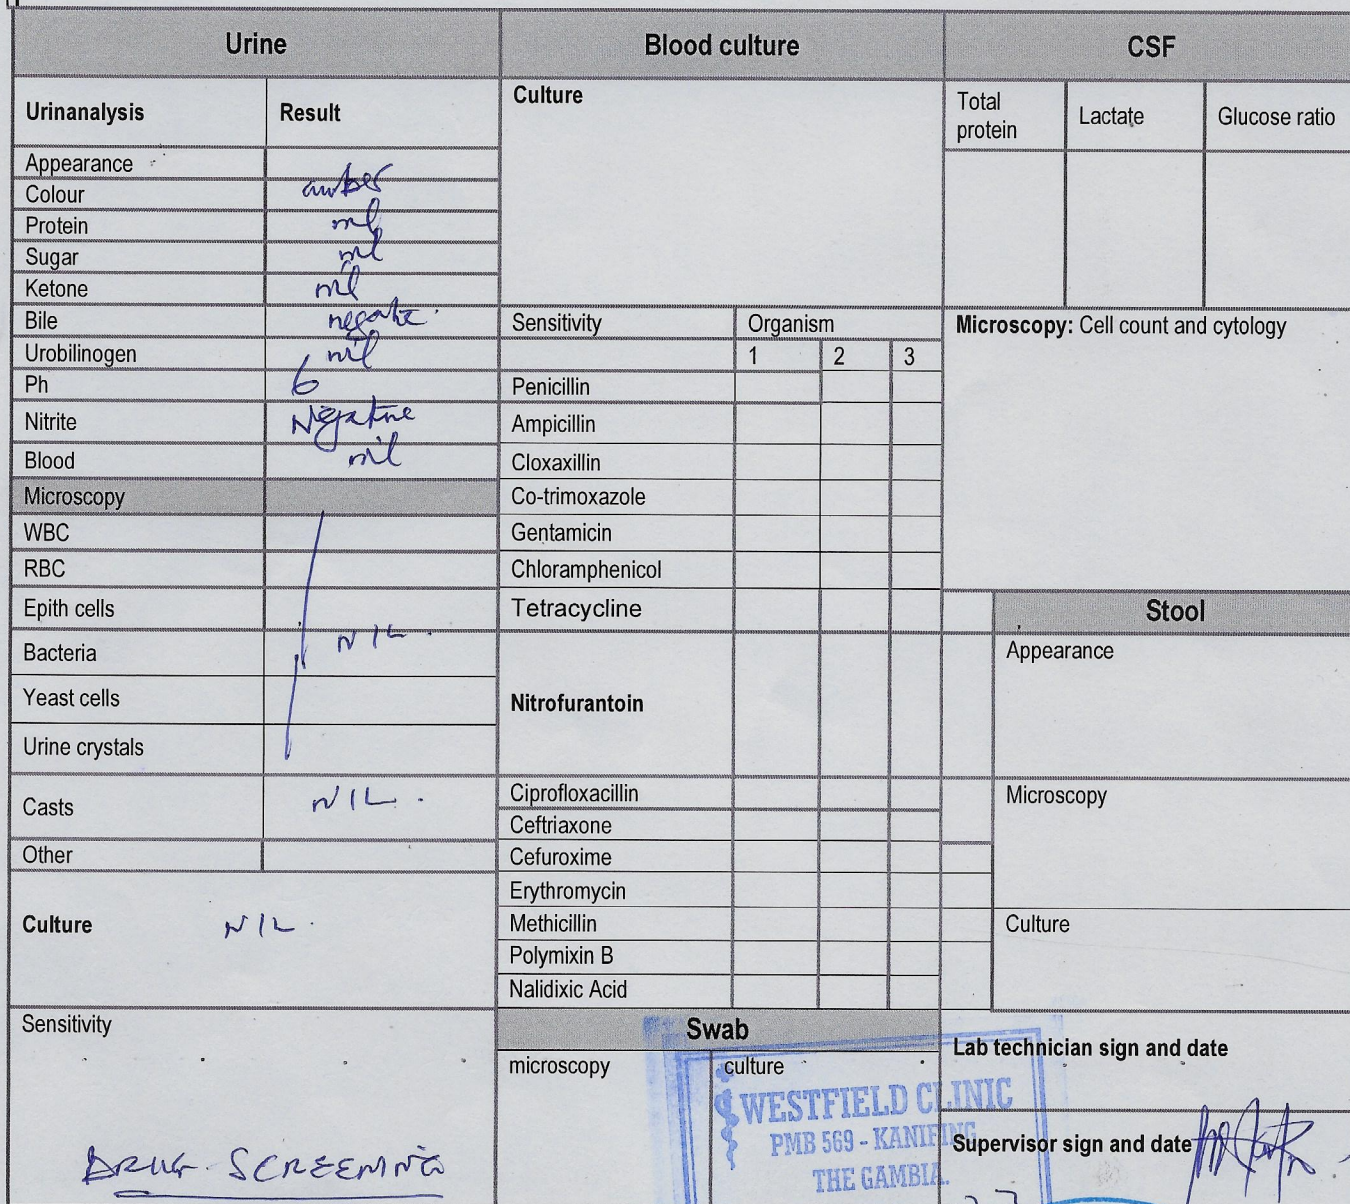 Urine Blood culture CSF
Urinanalysis Result Culture Total protein Lactate Glucose ratio
Appearance
Colour amber
Protein nil
Sugar nil
Ketone nil
Bile negative
Urobilinogen nil
Ph 6
Nitrite Negative
Blood nil
Microscopy
WBC
RBC
Epith cells
Bacteria NIL.
Yeast cells
Urine crystals
Casts NIL.
Other
Culture NIL.
Sensitivity
DRUG SCREENING
Sensitivity Organism
1 2 3
Penicillin
Ampicillin
Cloxaxillin
Co-trimoxazole
Gentamicin
Chloramphenicol
Tetracycline
Nitrofurantoin
Ciprofloxacillin
Ceftriaxone
Cefuroxime
Erythromycin
Methicillin
Polymixin B
Nalidixic Acid
Swab
microscopy culture
WESTFIELD CLINIC
PMB 569 - KANIFING
THE GAMBIA.
Microscopy: Cell count and cytology
Stool
Appearance
Microscopy
Culture
Lab technician sign and date
Supervisor sign and date